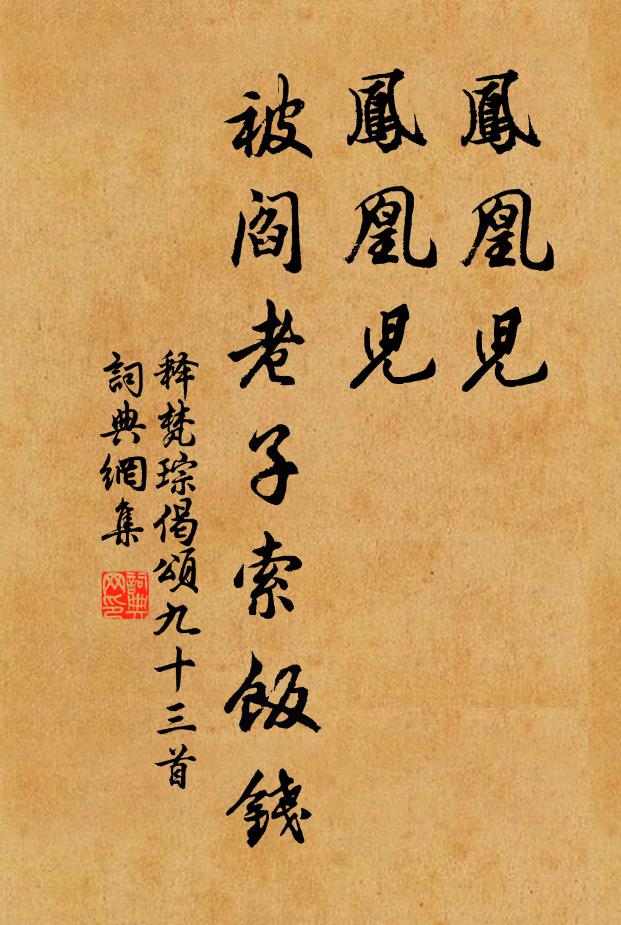 鳳凰児
鳳凰児
被阎老子索飯錢
释梵琮偈頌九十三首
詞典網集
詞典网印